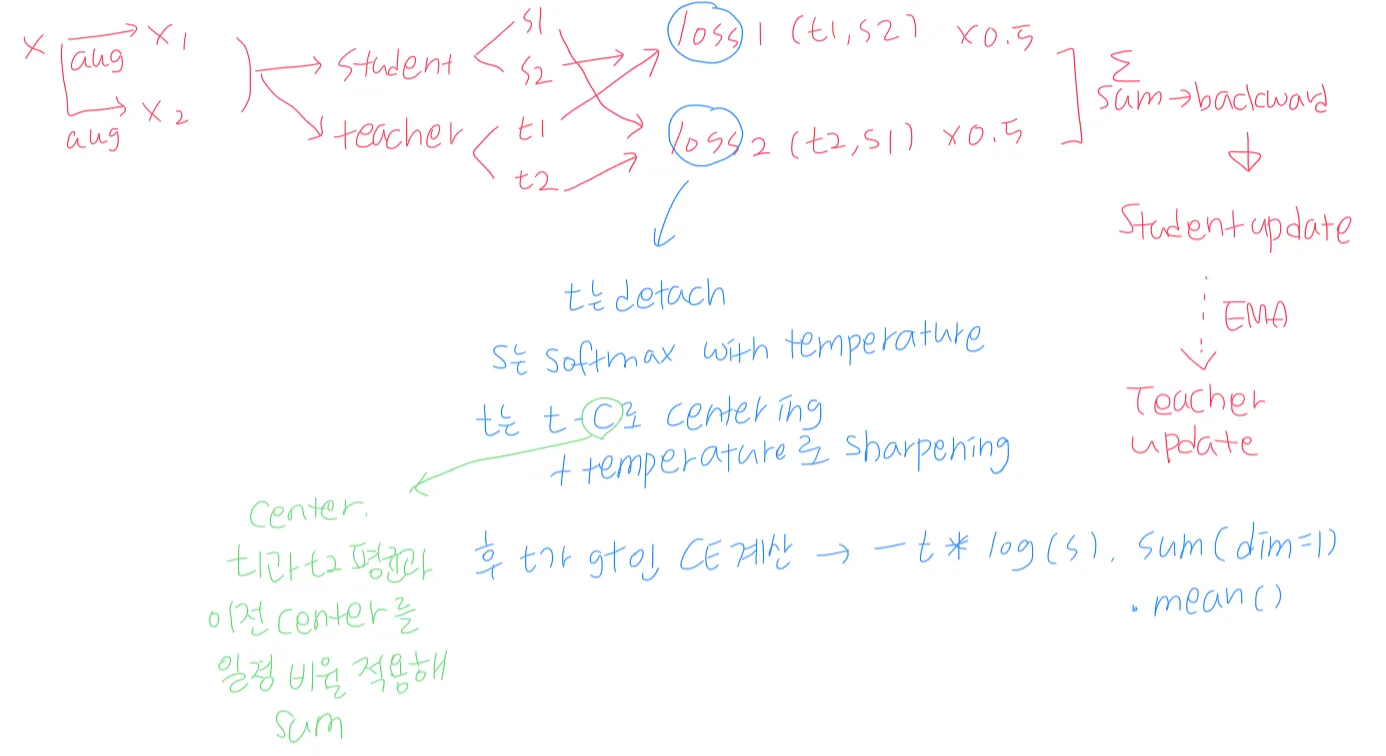 x aug x1
aug x2
student s1
s2
teacher t1
t2
loss1 (t1,s2) x0.5
loss2 (t2,s1) x0.5
Σ
sum→backward
Student update
EMA
Teacher
update
t는 detach
s는 softmax with temperature
t는 t-C로 centering
+ temperature로 sharpening
후 t가 gt인 CE 계산 → -t * log(s). sum(dim=1)
.mean()
center.
t1과 t2 평균과
이전 center를
일정 비율 적용해
sum